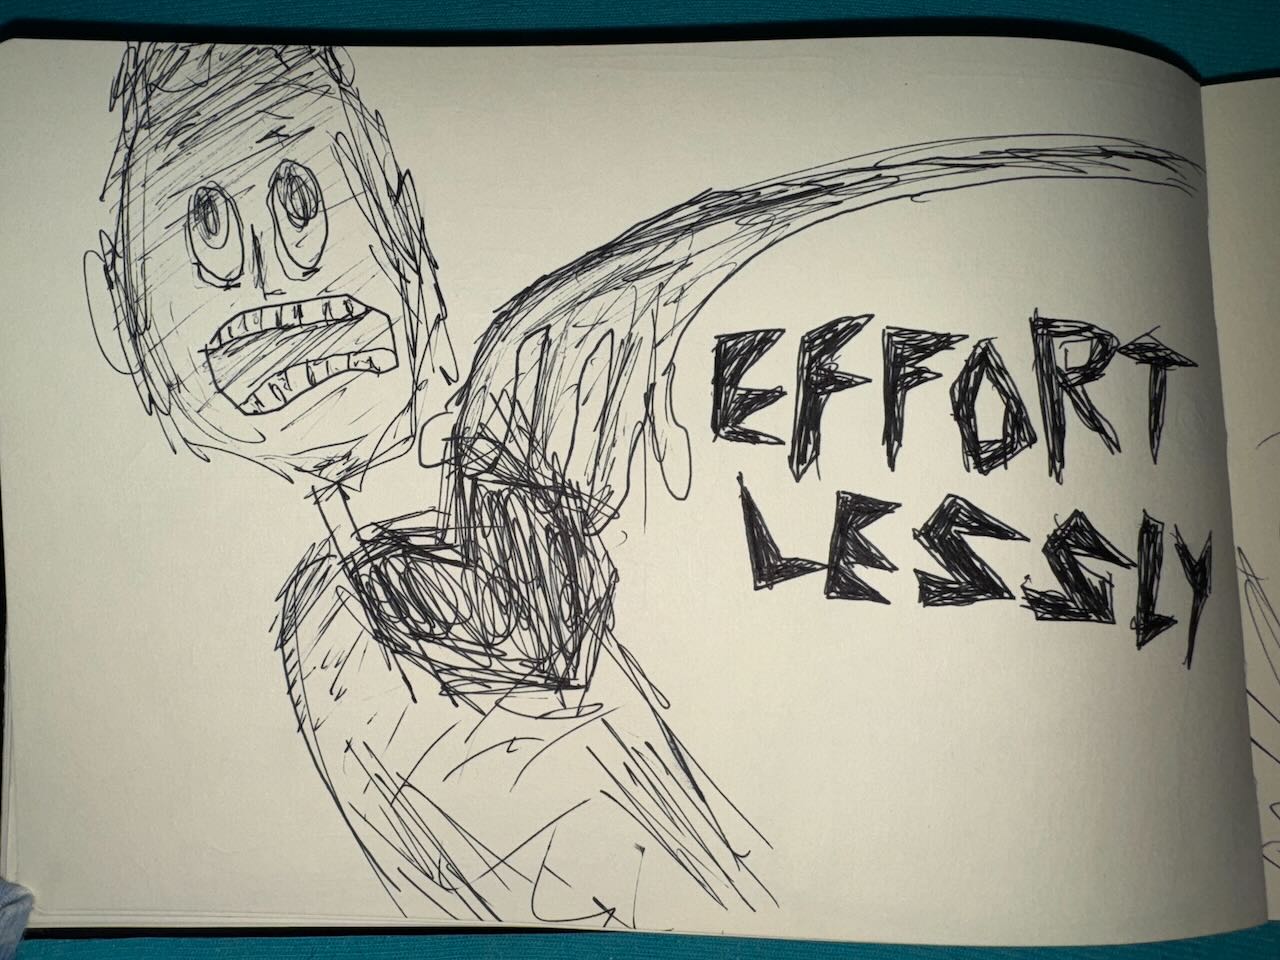 EFFORT
LESSLY